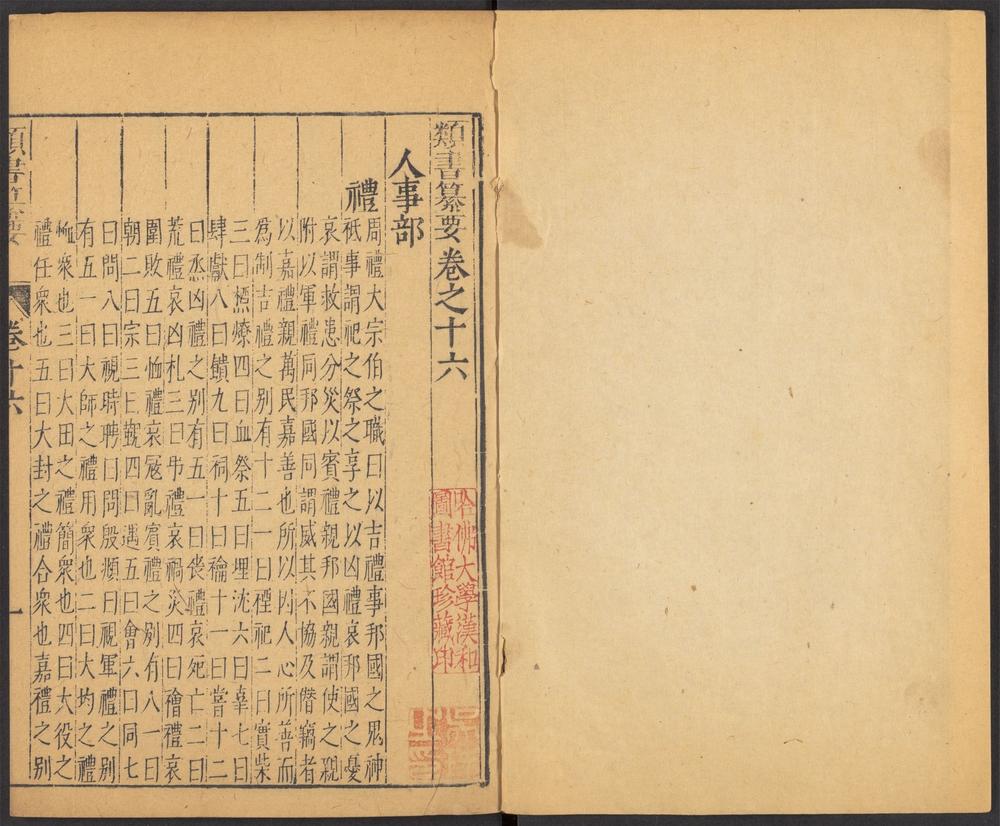 類書纂要卷之十六
哈佛大學漢和
圖書館珍藏印
人事部
禮
周禮大宗伯之職曰以吉禮事邦國之鬼神
祇事謂祀之祭之享之以凶禮哀邦國之憂
哀謂救患分災以賓禮親邦國親謂使之親
附以軍禮同邦國同謂威其不協及僭竊者
以嘉禮親萬民嘉善也所以因人心所善而
為制吉禮之別有十二一曰禋祀二曰實柴
三曰槱燎四曰血祭五曰埋沈六曰辜七曰
肆獻八曰饋九曰祠十曰禴十一曰嘗十二
曰烝凶禮之別有五一曰喪禮哀死亡二曰
荒禮哀凶札三曰弔禮哀禍災四曰禬禮哀
圍敗五曰恤禮哀寇亂賓禮之別有八一曰
朝二曰宗三曰覲四曰遇五曰會六曰同七
曰問八曰視時聘曰問殷頫曰視軍禮之別
有五一曰大師之禮用衆也二曰大均之禮
恤衆也三曰大田之禮簡衆也四曰大役之
禮任衆也五曰大封之禮合衆也嘉禮之別
類書纂要
卷十六
一